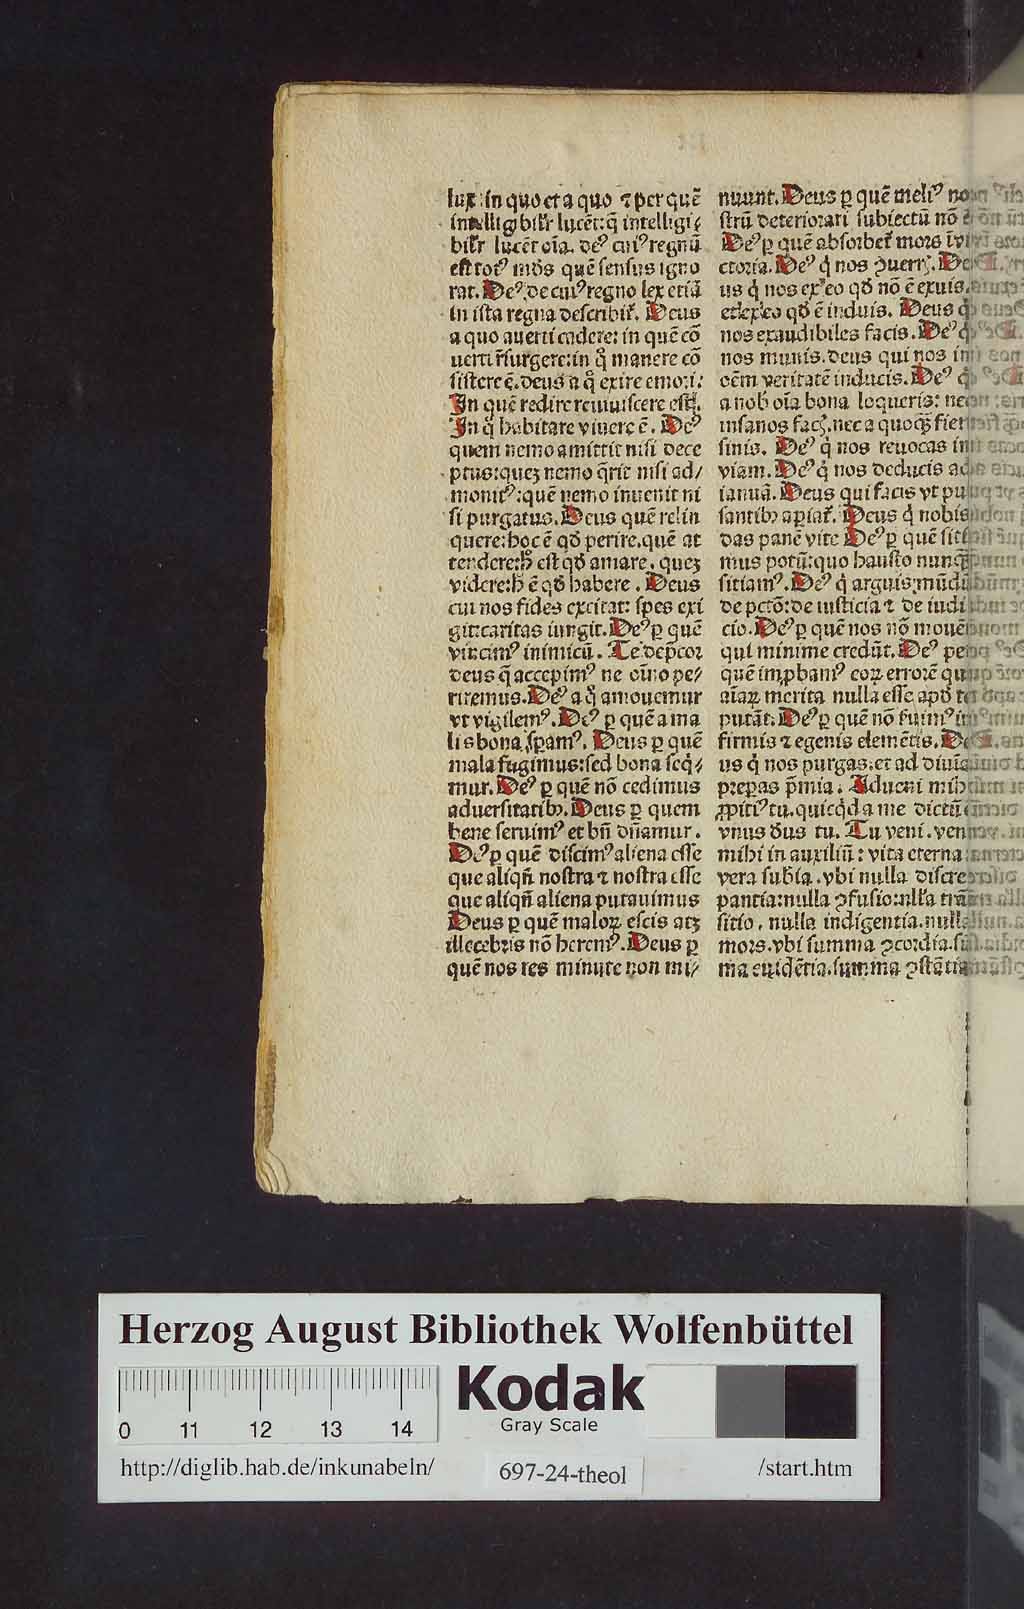 lux: in quo et a quo ⁊ per quē
intelligibilr̄ lucēt: q̄ intelligi⸗
bilr̄ lucēt oīa. deꝰ cuiꝰ regnū
est totꝰ mūdꝰ quē sensus igno
rat. Deꝰ: de cuiꝰ regno lex etiā
in ista regna describit̄. Deus
a quo auerti cadere: in quē cō
uerti r̄surgere: in q̊ manere cō
sistere ē. deus a q̊ exire emori:
In quē redire reuiuiscere est.
In q̊ habitare viuere ē. Deꝰ
quem nemo amittit nisi dece
ptus: quez nemo q̄rit nisi ad/
monitꝰ: quē nemo inuenit ni
si purgatus. Deus quē relin
quere: hoc ē qd̓ perire. quē at
tendere: h̄ est qd̓ amare. quez
videre: h̄ ē qd̓ habere. Deus
cui nos fides excitat: spes eri
git: caritas iungit. Deꝰ ꝑ quē
vincimꝰ inimicū. Te dep̄cor
deus q̄ accepimꝰ ne oīno pe/
riremus. Deꝰ a q̊ amouemur
vt vigilemꝰ. Deꝰ ꝑ quē a ma
lis bona sꝑamꝰ. Deus ꝑ quē
mala fugimus: sed bona seq̇⸗
mur. Deꝰ ꝑ quē nō cedimus
aduersitatibꝫ. Deus ꝑ quem
bene seruimꝰ et bn̄ dn̄amur.
Deꝰ ꝑ quē discimꝰ aliena esse
que aliqn̄ nostra ⁊ nostra esse
que aliqn̄ aliena putauimus
Deus ꝑ quē maloꝝ escis atꝫ
illecebris nō heremꝰ. Deus ꝑ
quē nos res minute non mi/
nuunt. Deus ꝑ quē meliꝰ no
strū deteriorari subiectū nō ē
Deꝰ ꝑ quē absorbet̄ mors in vi
ctoria. Deꝰ q̇ nos ꝯuert. De
us q̇ nos eo qd̓ nō ē exuis.
et eo qd̓ ē induis. Deus q̇
nos exaudibiles facis. Deꝰ q̇
nos munis. deus qui nos in
oēm veritatē inducis. Deꝰ q̇
a nob̓ oīa bona loqueris: nec
insanos fac. nec a quoq̄ fieri
sinis. Deꝰ q̇ nos reuocas in
viam. Deꝰ q̇ nos deducis ad
ianuā. Deus qui facis vt pul
santibꝫ aꝑiat̄. Deus q̇ nobis
das panē vite Deꝰ ꝑ quē siti
mus potū: quo hausto nunq̄
sitiamꝰ. Deꝰ q̇ arguis mūdū
de pctō: de iusticia ⁊ de iudi
cio. Deꝰ ꝑ quē nos nō mouēt
qui minime credūt. Deꝰ per
quē imꝓbamꝰ eoꝝ errorē qui
aīaꝝ merita nulla esse apd̓ te
putāt. Deꝰ ꝑ quē nō suimꝰ in
firmis ⁊ egenis elemētis. De
us q̇ nos purgas: et ad diuia
preꝑas p̄mia. Adueni mihi
ꝓpitiꝰ tu. quicq̇d a me dictū
vnus dꝰus tu. Tu veni.
mihi in auxiliū: vita eterna
vera subīa. vbi nulla discre
pantia: nulla ꝯfusio: nll̓a trā
sitio. nulla indigentia. nulla
mors. vbi summa ꝯcordia. sū
ma euidētia. summa ꝯstātia
Herzog August Bibliothek Wolfenbüttel
0 11 12 13 14
Kodak
Gray Scale
http://diglib.hab.de/inkunabeln/ 697-24-theol /start.htm